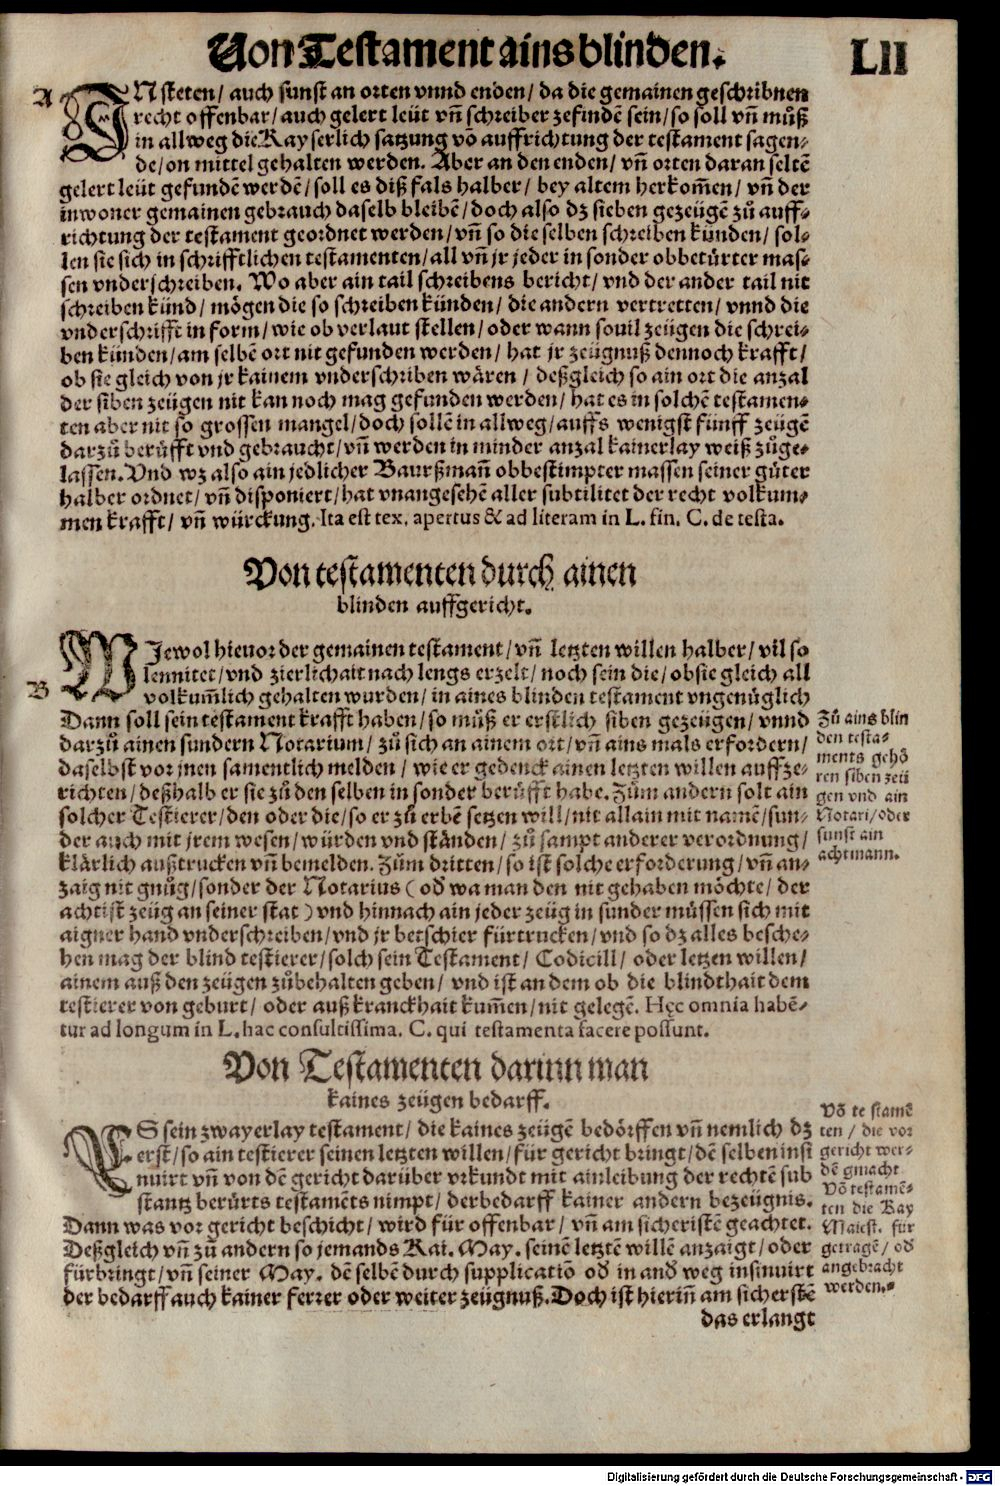 Von Testament ains blinden.
LII
A
IN steten/ auch sunst an orten vnnd enden/ da die gemainen geschribnen
recht offenbar/ auch gelert leüt vñ schreiber zefindē sein/ so soll vñ můß
in allweg die Kayserlich satzung vō auffrichtung der testament sagen⸗
de/ on mittel gehalten werden. Aber an den enden/ vñ orten daran seltē
gelert leüt gefundē werdē/ soll es diß fals halber/ bey altem herkom̃en/ vñ der
inwoner gemainen gebrauch daselb bleibē/ doch also dz sieben gezeügē zů auff⸗
richtung der testament geordnet werden/ vñ so die selben schreiben künden/ sol⸗
len sie sich in schrifftlichen testamenten/ all vñ jr jeder in sonder obbetürter mas⸗
sen vnderschreiben. Wo aber ain tail schreibens bericht/ vnd der ander tail nit
schreiben künd/ mögen die so schreiben künden/ die andern vertretten/ vnnd die
vnderschrifft in form/ wie ob verlaut stellen/ oder wann souil zeügen die schrei⸗
ben künden/ am selbē ort nit gefunden werden/ hat jr zeügnuß dennoch krafft/
ob sie gleich von jr kainem vnderschriben wären/ deßgleich so ain ort die anzal
der siben zeügen nit kan noch mag gefunden werden/ hat es in solchē testamen⸗
ten aber nit so grossen mangel/ doch sollē in allweg/ auffs wenigst fünff zeügē
darzů berüfft vnd gebraucht/ vñ werden in minder anzal kainerlay weiß zůge⸗
lassen. Vnd wz also ain jedlicher Baurßmañ obbestimpter massen seiner güter
halber ordnet/ vñ disponiert/ hat vnangesehē aller subtilitet der recht volkum⸗
men krafft/ vñ würckung. Ita est tex. apertus & ad literam in L. fin. C. de testa.
Von testamenten durch ainen
blinden auffgericht.
B
WJewol hieuor der gemainen testament/ vñ letzten willen halber/ vil so
lennitet/ vnd zierlichait nach lengs erzelt/ noch sein die/ obsie gleich all
volkum̃lich gehalten wurden/ in aines blinden testament vngenüglich
Dann soll sein testament krafft haben/ so můß er erstlich siben gezeügen/ vnnd
darzů ainen sundern Notarium/ zů sich an ainem ort/ vñ ains mals erfordern/
daselbst vor jnen samentlich melden/ wie er gedenck ainen letzten willen auffze⸗
richten/ deßhalb er sie zů den selben in sonder berüfft habe. Zům andern solt ain
solcher Testierer/ den oder die/ so er zů erbē setzen will/ nit allain mit namē/ sun⸗
der auch mit jrem wesen/ würden vnd ständen/ zů sampt anderer verordnung/
klärlich außtrucken vñ bemelden. Zům dritten/ so ist solche erforderung/ vñ an⸗
zaig nit gnůg/ sonder der Notarius ( od wa man den nit gehaben möchte/ der
achtist zeüg an seiner stat ) vnd hinnach ain jeder zeüg in sunder müssen sich mit
aigner hand vnderschreiben/ vnd jr betschier fürtrucken/ vnd so dz alles besche⸗
hen mag der blind testierer/ solch sein Testament/ Codicill/ oder letzen willen/
ainem auß den zeügen zůbehalten geben/ vnd ist an dem ob die blindthait dem
testierer von geburt/ oder auß kranckhait kum̃en/ nit gelegē. Hęc omnia habē⸗
tur ad longum in L. hac consultissima. C. qui testamenta facere possunt.
Zů ains blin
den testa⸗
ments gehö
ren siben zeü
gen vnd ain
Notari/ oder
sunst ain
achtmann.
Von Testamenten darinn man
kaines zeügen bedarff.
ES sein zwayerlay testament/ die kaines zeügē bedörffen vñ nemlich dz
erst/ so ain testierer seinen letzten willen/ für gericht bringt/ dē selben insi
nuirt vñ von dē gericht darüber vrkundt mit ainleibung der rechtē sub
stantz berürts testamēts nimpt/ der bedarff kainer andern bezeügnis.
Dann was vor gericht beschicht/ wird für offenbar/ vñ am sicheristē geachtet.
Deßgleich vñ zů andern so jemands Kai. May. seinē letztē willē anzaigt/ oder
fürbringt/ vñ seiner May. dē selbē durch supplicatiō od in and weg insinuirt
der bedarff auch kainer ferrer oder weiter zeügnuß. Doch ist hieriñ am sicherstē
das erlangt
Vō te stamē
ten/ die vor
gericht wer⸗
dē gmacht
Vō testamē⸗
ten die Kay
Maiest. für
getragē/ od
angebracht
werden.⸗
Digitalisierung gefördert durch die Deutsche Forschungsgemeinschaft - DFG